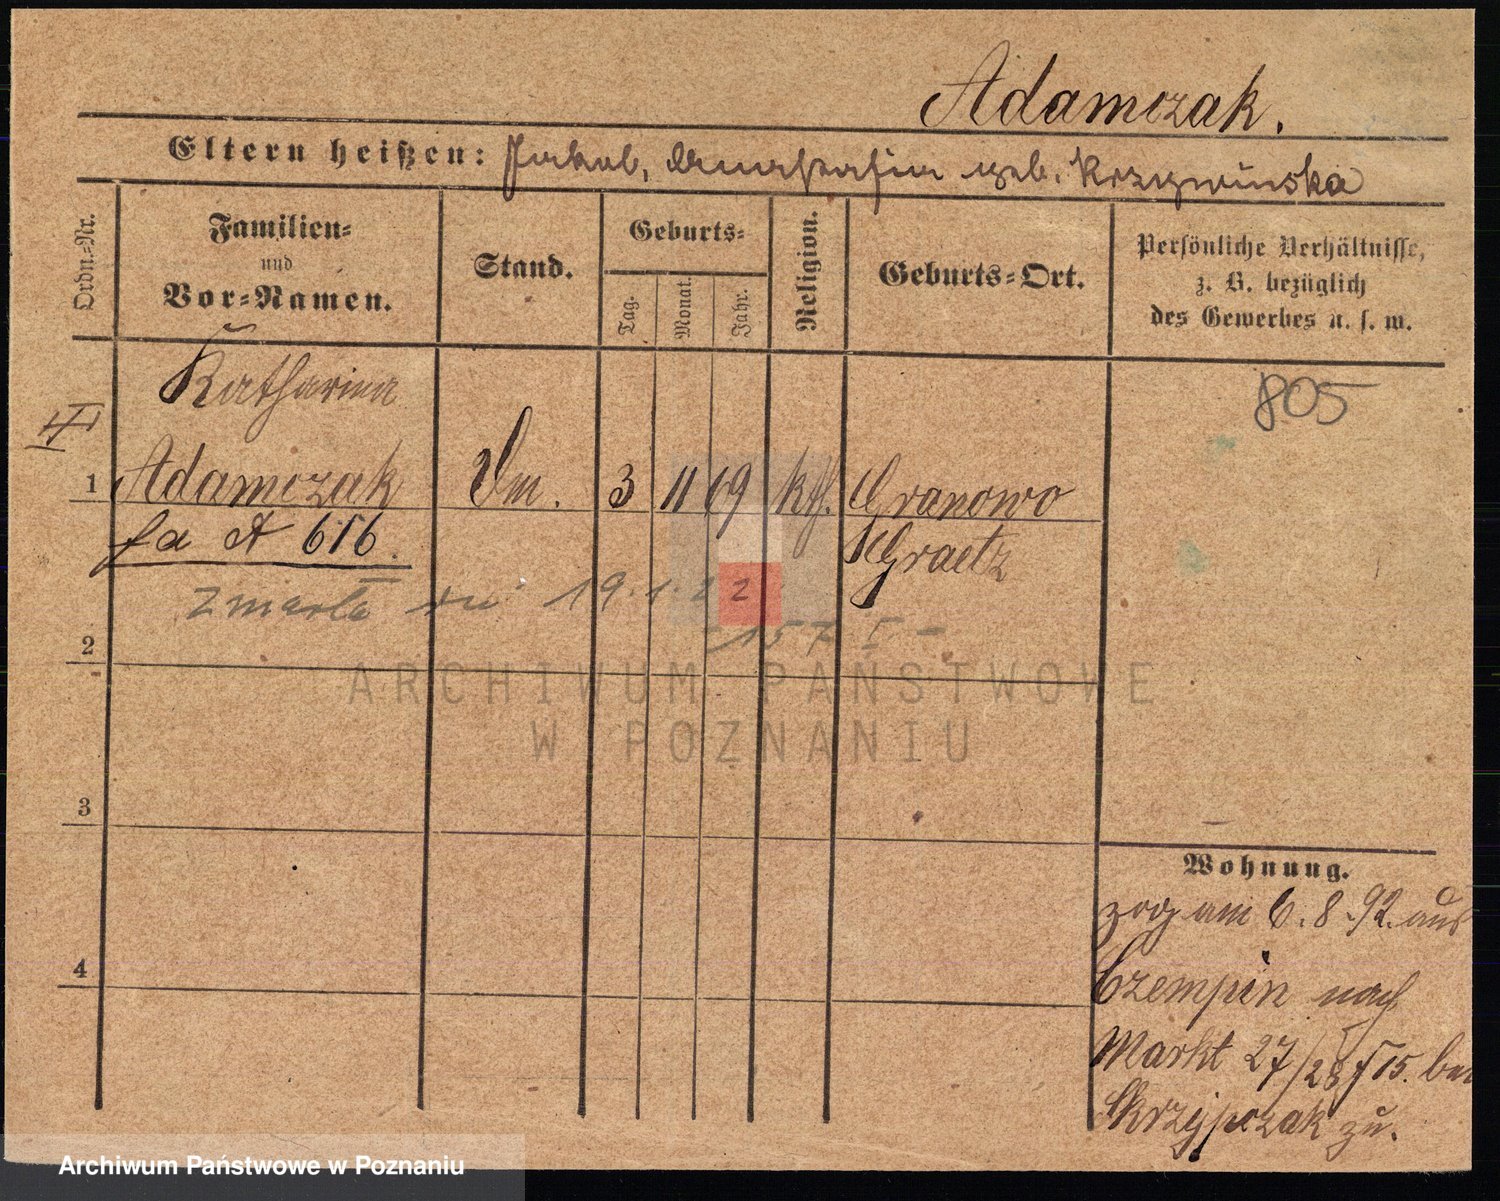 Adamczak.
Eltern heißen: Jakob, Anastasia geb. Krzywinska
Ordn.-Nr.
Familien-
und
Vor-Namen.
Stand.
Geburts-
Tag.
Monat.
Jahr.
Religion.
Geburts-Ort.
Persönliche Verhältnisse,
z. B. bezüglich
des Gewerbes u. s. w.
805
Katharina
1 Adamczak 3 11 69 kth. Granowo
fa A 616.
Graetz
zmarła dn 19.1.22
-157 I-
2
ARCHIWUM PAŃSTWOWE
W POZNANIU
3
4
Wohnung.
zog am 6.8.92. aus
Czempin nach
Markt 27/28 bei
Skrzypczak zu.
Archiwum Państwowe w Poznaniu